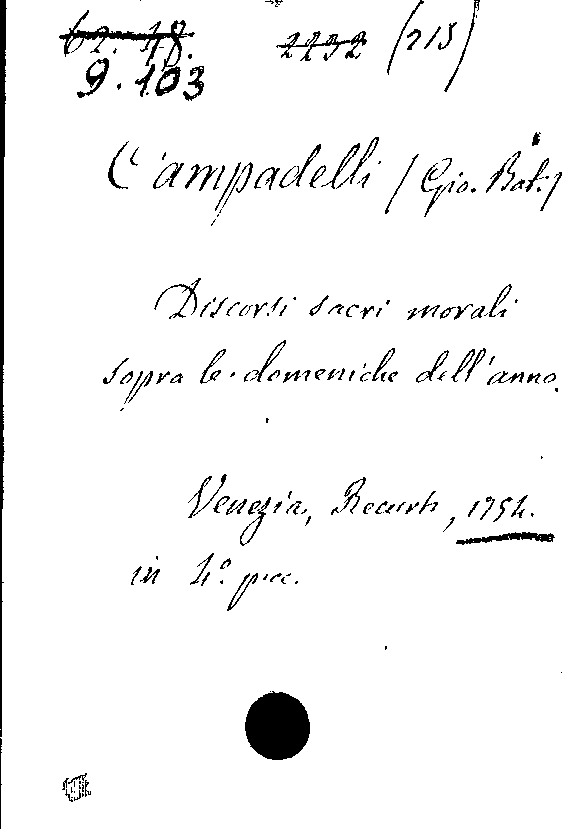 62. 48. 2232 (213)
9.103
Campadelli / Gio. Bat. /
Discorsi sacri morali
sopra le domeniche dell'anno.
Venezia, Recurti, 1754.
in 4.º picc.